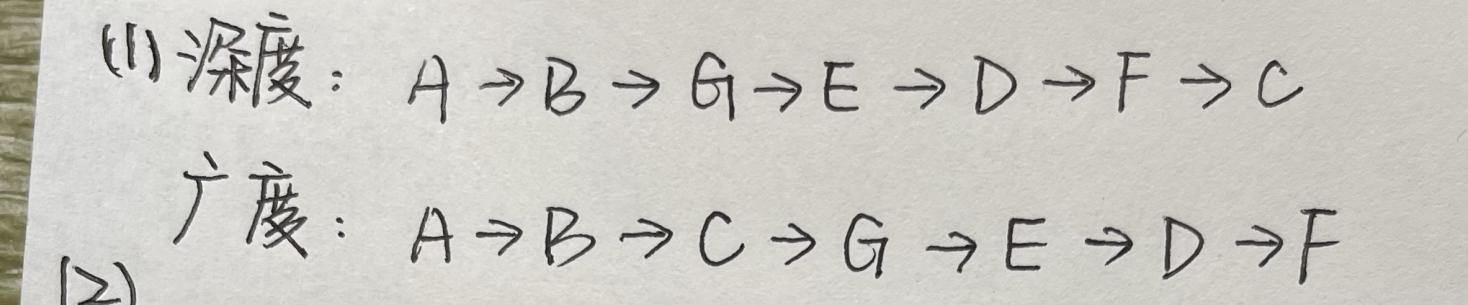 (1) 深度: A → B → G → E → D → F → C
广度: A → B → C → G → E → D → F
(2)